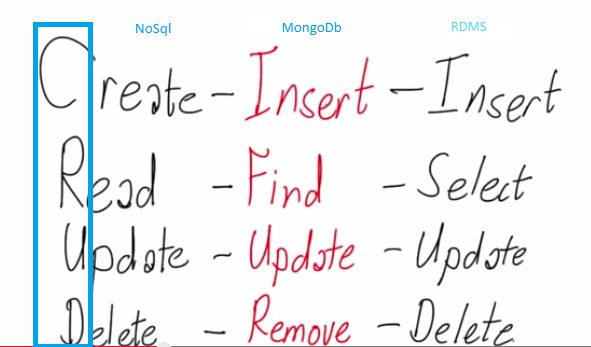 NoSql MongoDb RDMS
Create - Insert - Insert
Read - Find - Select
Update - Update - Update
Delete - Remove - Delete